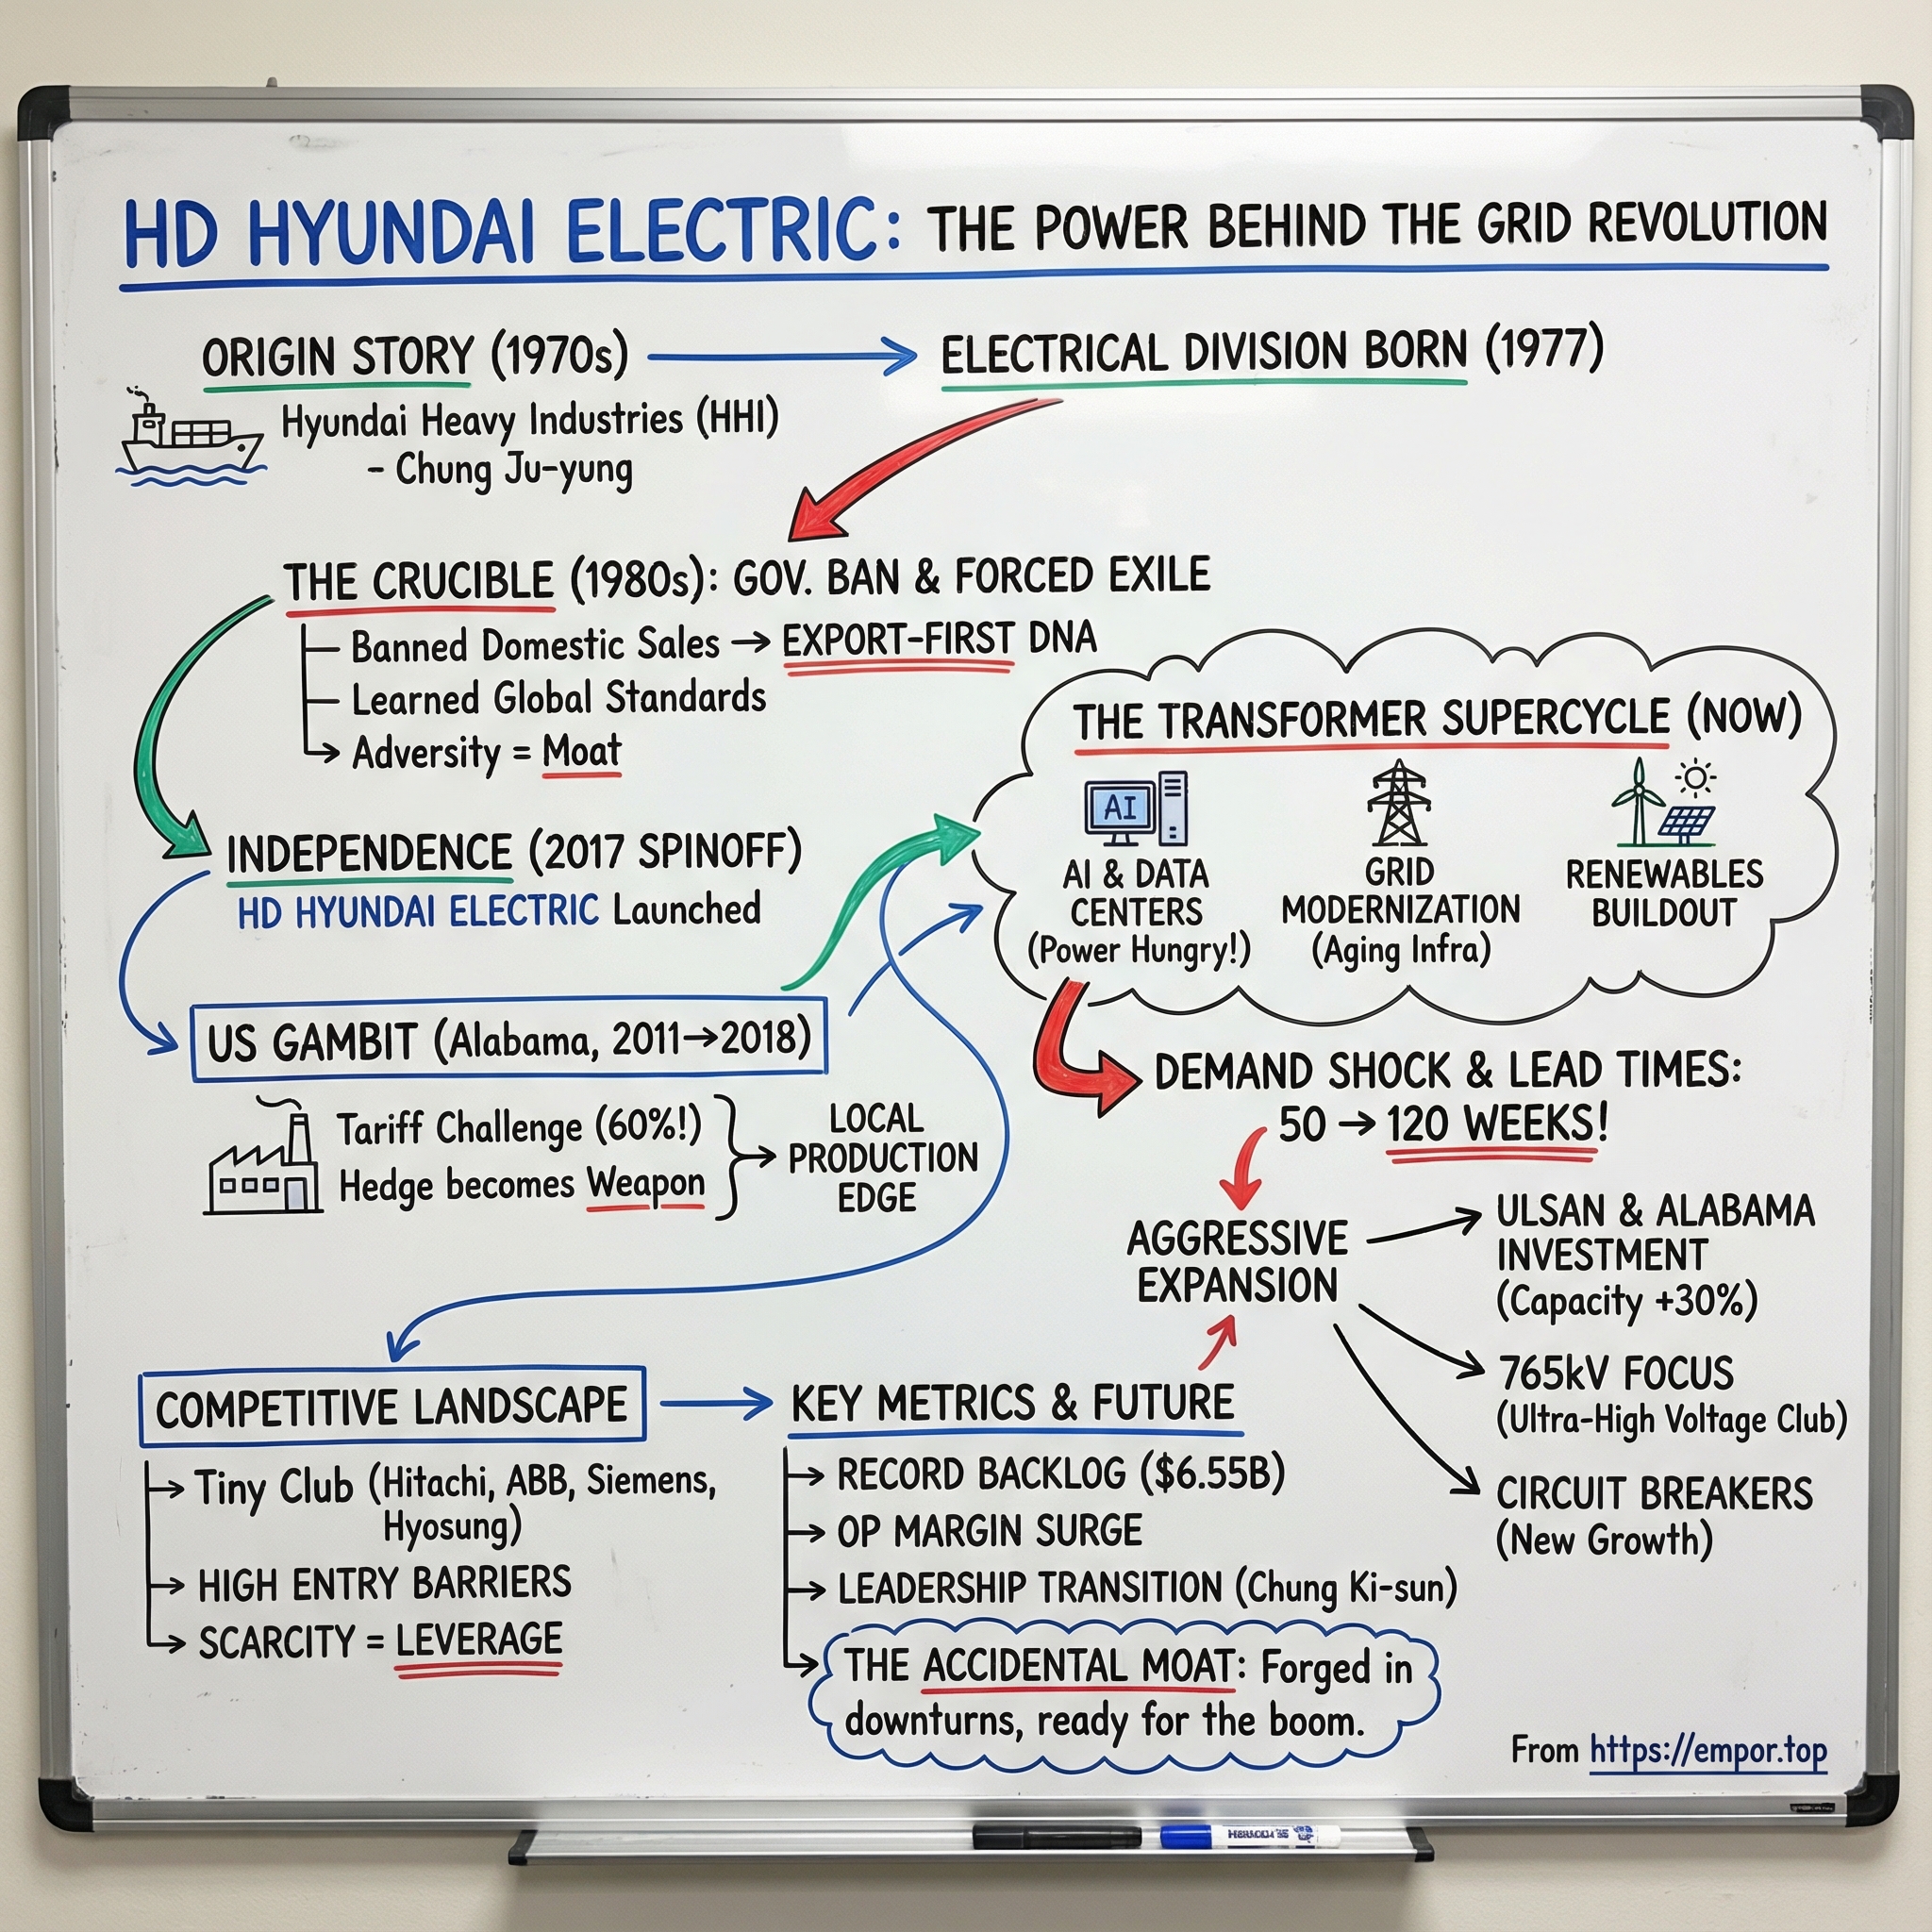 HD HYUNDAI ELECTRIC: THE POWER BEHIND THE GRID REVOLUTION
ORIGIN STORY (1970s)
Hyundai Heavy Industries (HHI)
- Chung Ju-yung
ELECTRICAL DIVISION BORN (1977)
THE CRUCIBLE (1980s): GOV. BAN & FORCED EXILE
Banned Domestic Sales → EXPORT-FIRST DNA
Learned Global Standards
Adversity = Moat
INDEPENDENCE (2017 SPINOFF)
HD HYUNDAI ELECTRIC Launched
US GAMBIT (Alabama, 2011→2018)
Tariff Challenge (60%!)
Hedge becomes Weapon
LOCAL
PRODUCTION
EDGE
THE TRANSFORMER SUPERCYCLE (NOW)
AI
AI & DATA
CENTERS
(Power Hungry!)
GRID
MODERNIZATION
(Aging Infra)
RENEWABLES
BUILDOUT
DEMAND SHOCK & LEAD TIMES:
50 → 120 WEEKS!
AGGRESSIVE
EXPANSION
ULSAN & ALABAMA
INVESTMENT
(Capacity +30%)
765kV FOCUS
(Ultra-High Voltage Club)
CIRCUIT BREAKERS
(New Growth)
COMPETITIVE LANDSCAPE
Tiny Club (Hitachi, ABB, Siemens,
Hyosung)
HIGH ENTRY BARRIERS
SCARCITY = LEVERAGE
KEY METRICS & FUTURE
RECORD BACKLOG ($6.55B)
OP MARGIN SURGE
LEADERSHIP TRANSITION (Chung Ki-sun)
THE ACCIDENTAL MOAT: Forged in
downturns, ready for the boom.
From https://empor.top